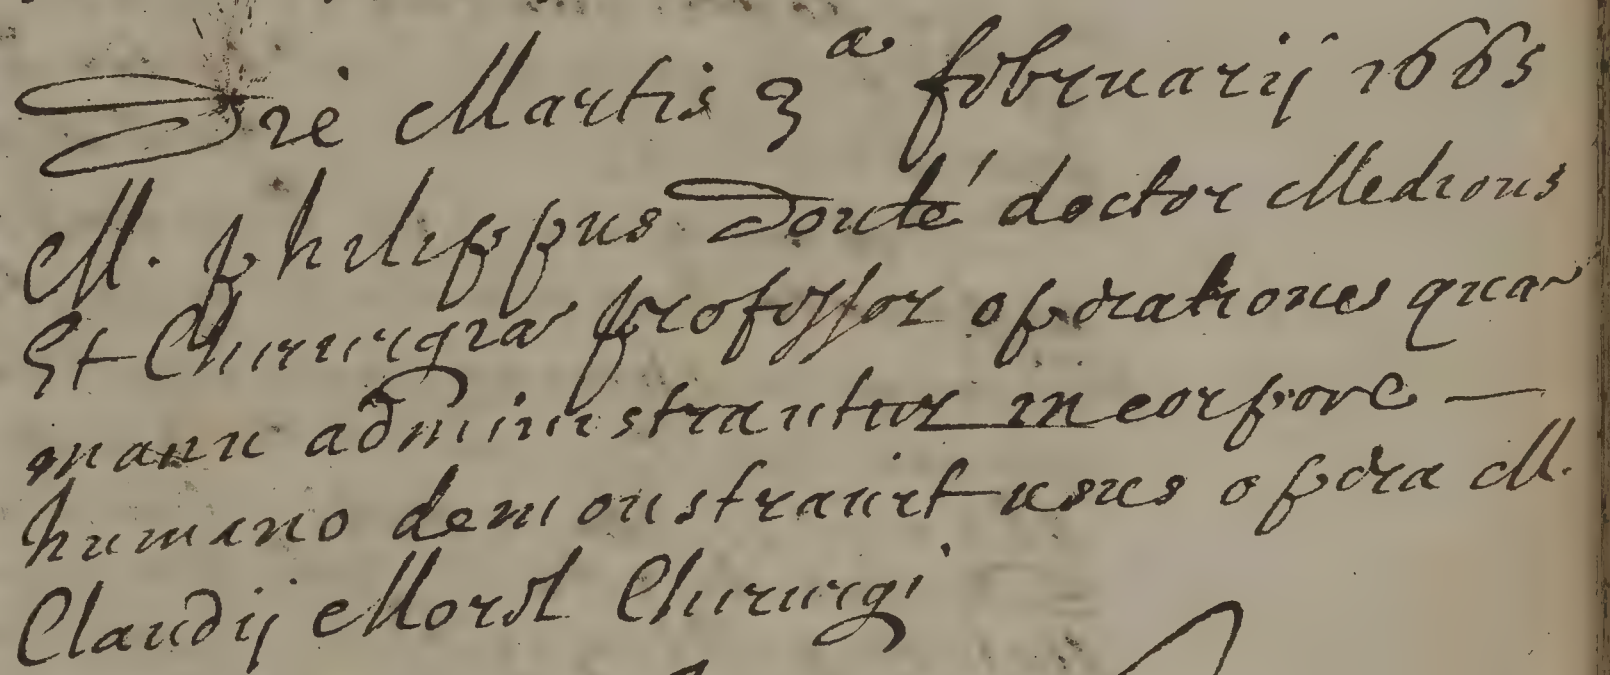 Die Martis 3a februarij 1665
M. philippus Douté doctor Medicus
Et Chirurgiæ professor operationes quæ
manu administrantur in corpore —
humano demonstrauit usus opera M.
Claudij Morel Chirurgi